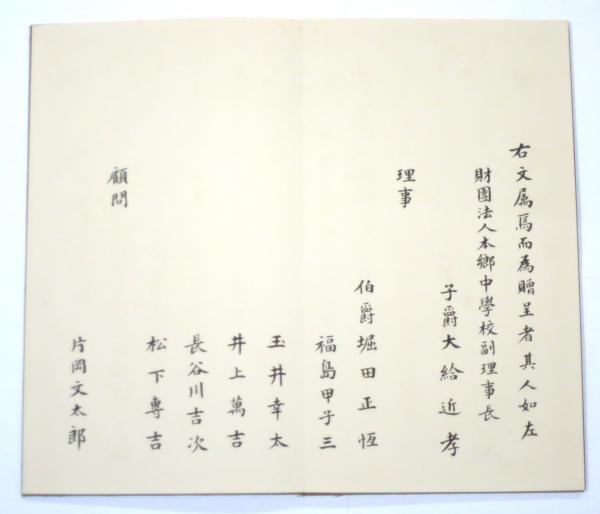 右文属焉而為贈呈者其人如左
財團法人本郷中學校副理事長
子爵大給近孝
理事
伯爵堀田正恆
福島甲子三
玉井幸太
井上萬吉
長谷川吉次
松下專吉
顧問
片岡文太郎